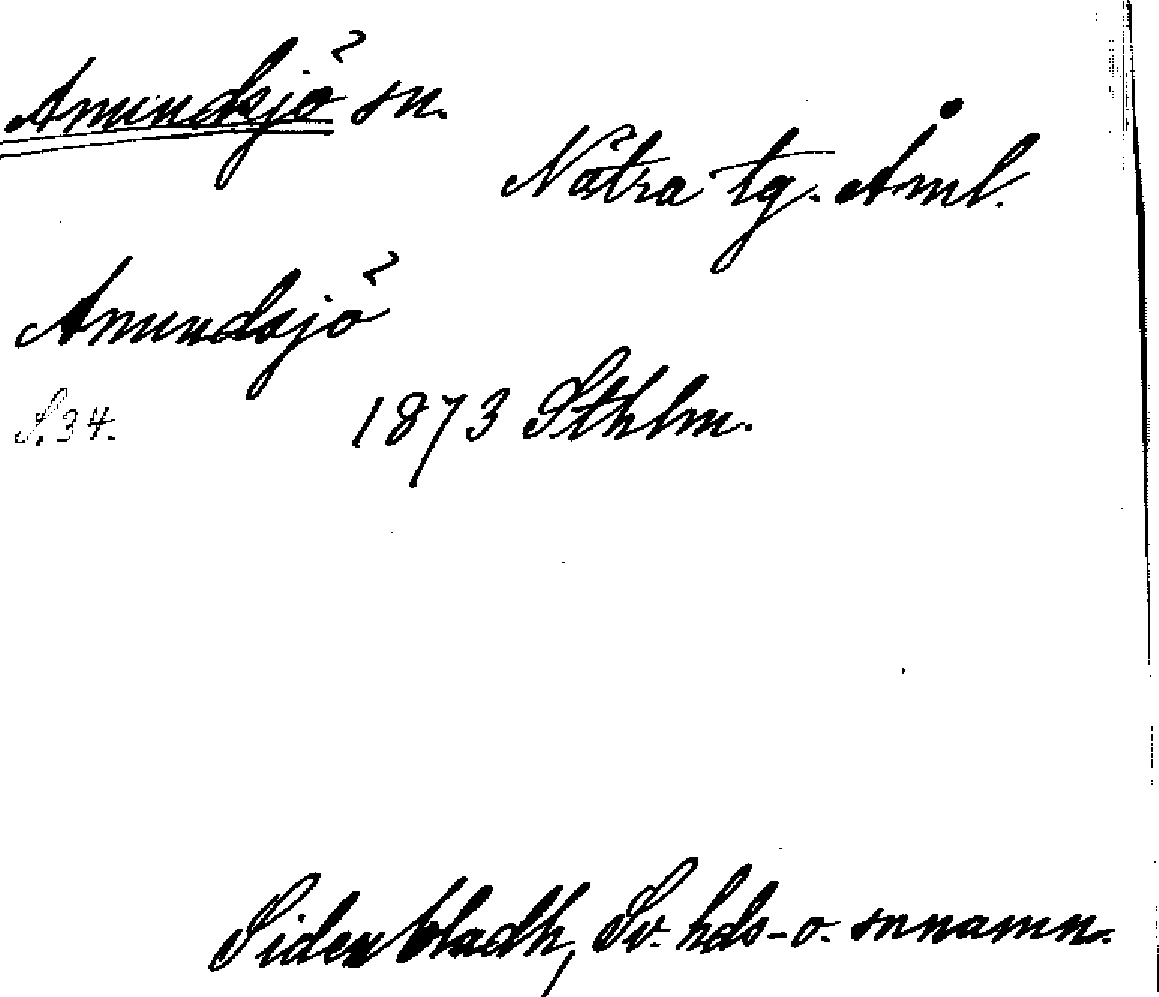 Amundsjö sn.
Nätra tg. Åml.
Amundsjö
S. 34. 1873 Sthlm.
Sidenbladh, Sv. hds- o. snnamn.